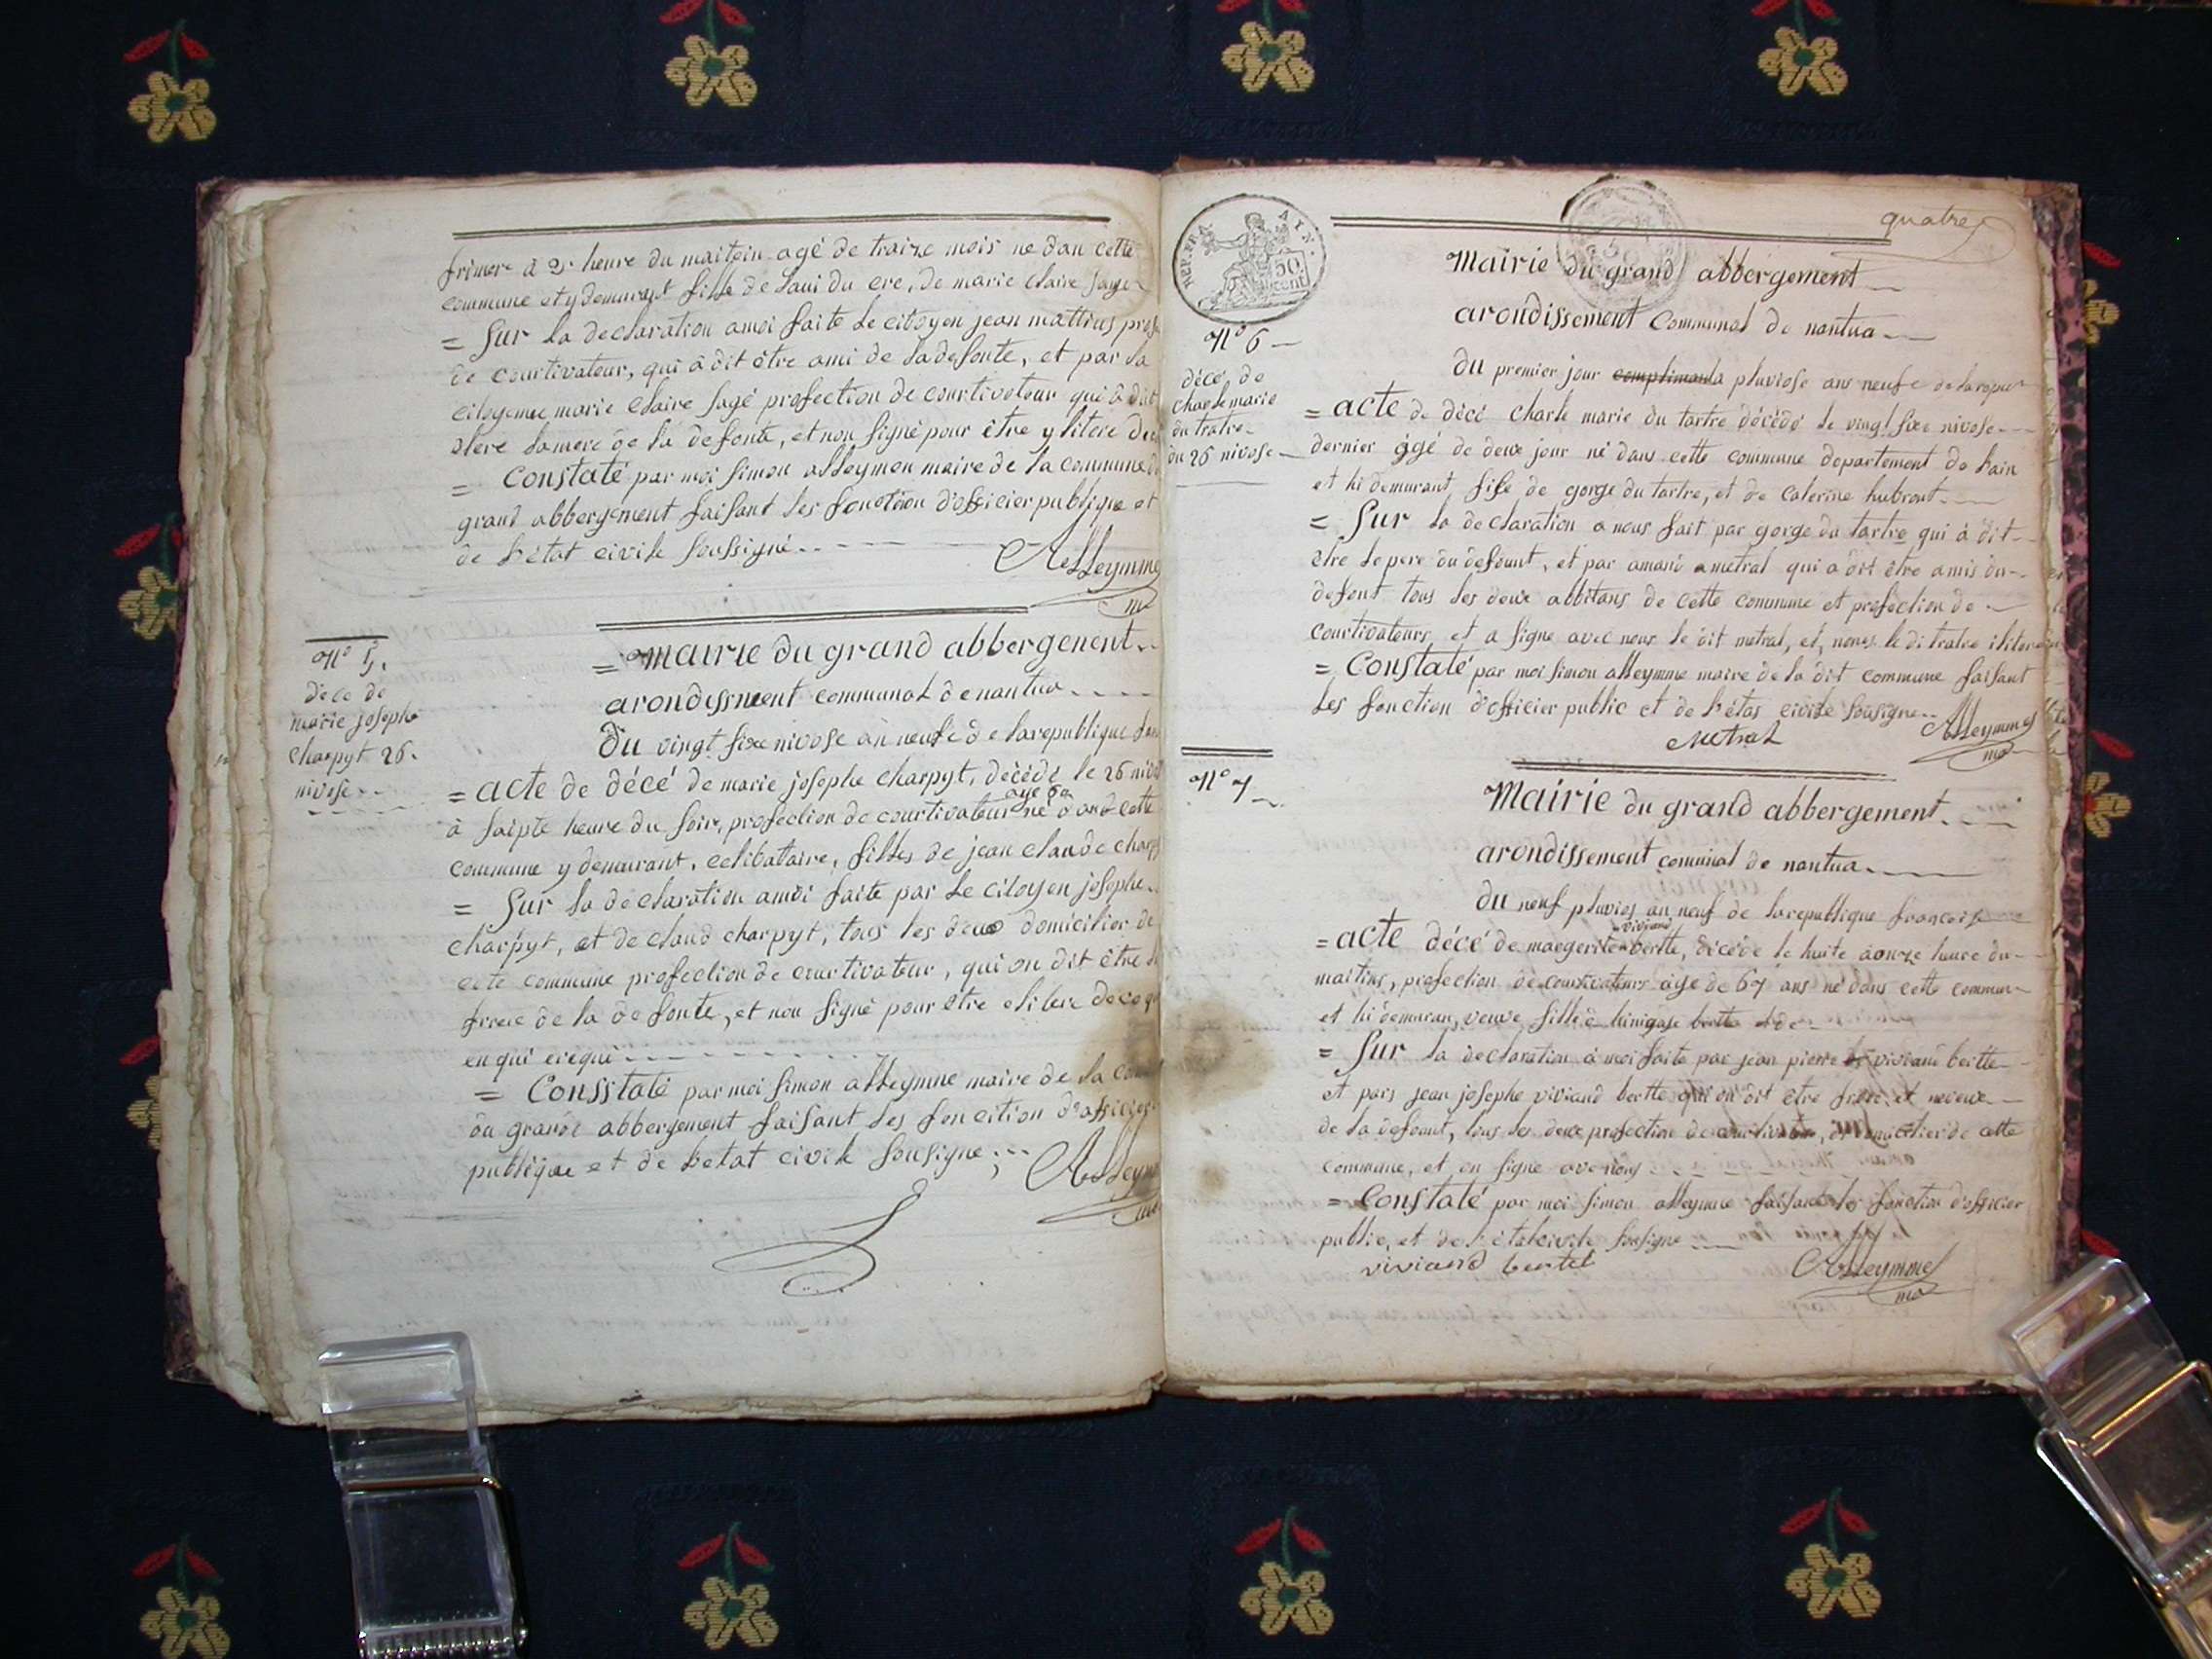 frimere à 2 heure du maitein agé de traize mois né dan cette
commune et y demurant fille de Loui du cre, de marie claire sage
= Sur la declaration amoi faite le citoyen jean mattius prof
de courtivateur, qui â dit être ami de la defonte, et par la
citoyenne marie claire sagé profection de courtivoteur qui â dit
lamere de la defonte, et non signé pour être ylitere
= Constaté par moi simon alleymen maire de la commune d
grand abbergement faisant les fonction d'officier publique et
de l'état civile soussigné
Alleymme
ma
N° 5.
déce de
marie josephe
charpyt 26.
nivose
= mairie du grand abbergement
arondissment communal de nantua
Du vingt sixe nivose an neufe de larepublique
= acte de décé de marie josephe charpyt, décédé le 26 nivo
à saipte heure du soir, profection de courtivateur né dans cette
commune y demurant, celibataire, filles de jean claude charp
= Sur la declaration amoi faite par le citoyen josephe
charpyt, et de claud charpyt, tous les deux domicilier de
cete commune profection de courtivateur, qui on dit être
frere de la defonte, et non signé pour être elitere de ce
en qui eregui
= Consstaté par moi simon alleymne maire de la com
du grand abbergement faisant les foncition d'officier
publique et de l'etat civile sousigne
Alleym
ma
REP. FRA. AYN.
50 cent
quatre
N° 6
décé de
charle marie
du tratre
du 26 nivose
Mairie du grand abbergement
arondissement communal de nantua
Du premier jour complimanla pluviose ans neufe de larepu
= acte de décé charle marie du tartre décédé le vingt sixe nivose
dernier âgé de deux jour né dans cette commune departement de lain
et hi demurant fise de gorge du tartre, et de caterine hubrout
= Sur la declaration a nous fait par gorge du tartre qui à dit
être le pere du defount, et par amand ametral qui a dit être amis du
defont tous les deux abbitans de cette commune et profection de
courtivateurs, et a signe avec nous le dit metral, et, nonst le di tratre
= Constaté par moi simon alleymme maire de la dit commune faisant
les fonction d'officier public et de l'étas civile sousigne
Alleymme
metral
ma
N° 7
Mairie du grand abbergement
arondissement comunal de nantua
Du neuf pluvios an neuf de larepublique francois
viviand
= acte décé de margerite bertte, décéde le huite aonze heure du
maitins, profection de courtivateurs age de 67 ans né dans cette commun
et hi demuran, veuve fille bertte et de
= Sur la declaration à moi faite par jean pierre viviand bertte
et pars jean josephe viviand bertte qui on dit etre frere, et neveux
de la defount, tous les deux profection de courtivateur, domicilier de cette
commune, et on signe avec nous
= Constaté par moi simon alleymme faisant les fonction d'officier
public, et de l'étatcivile sousigne
viviand bertet
Alleymme
ma